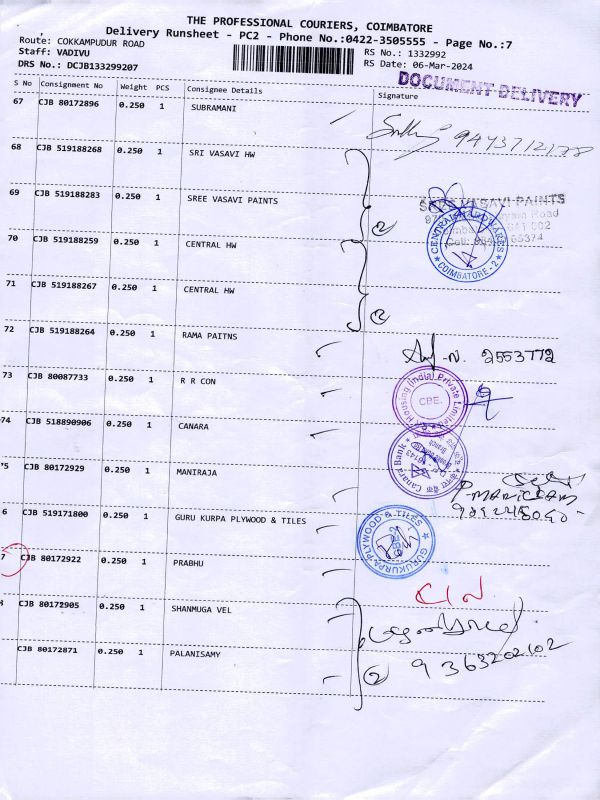 THE PROFESSIONAL COURIERS, COIMBATORE
Delivery Runsheet - PC2 - Phone No.:0422-3505555 - Page No.:7
Route: COKKAMPUDUR ROAD
RS No.: 1332992
Staff: VADIVU
RS Date: 06-Mar-2024
DRS No.: DCJB133299207
DOCUMENT DELIVERY
S No Consignment No Weight PCS Consignee Details Signature
67 CJB 80172896 0.250 1 SUBRAMANI
68 CJB 519188268 0.250 1 SRI VASAVI HW
69 CJB 519188283 0.250 1 SREE VASAVI PAINTS
SREE VASAVI PAINTS
70 CJB 519188259 0.250 1 CENTRAL HW
CENTRAL HARDWARES
COIMBATORE - 2
71 CJB 519188267 0.250 1 CENTRAL HW
72 CJB 519188264 0.250 1 RAMA PAITNS
2553772
73 CJB 80087733 0.250 1 R R CON
Housing (India) Private Limited
CBE.
74 CJB 518890906 0.250 1 CANARA
Canara Bank
75 CJB 80172929 0.250 1 MANIRAJA
P. MANICKAM
6 CJB 519171800 0.250 1 GURU KURPA PLYWOOD & TILES
GURUKURPA PLYWOOD & TILES
7 CJB 80172922 0.250 1 PRABHU
CIN
CJB 80172905 0.250 1 SHANMUGA VEL
CJB 80172871 0.250 1 PALANISAMY
② 9363202102